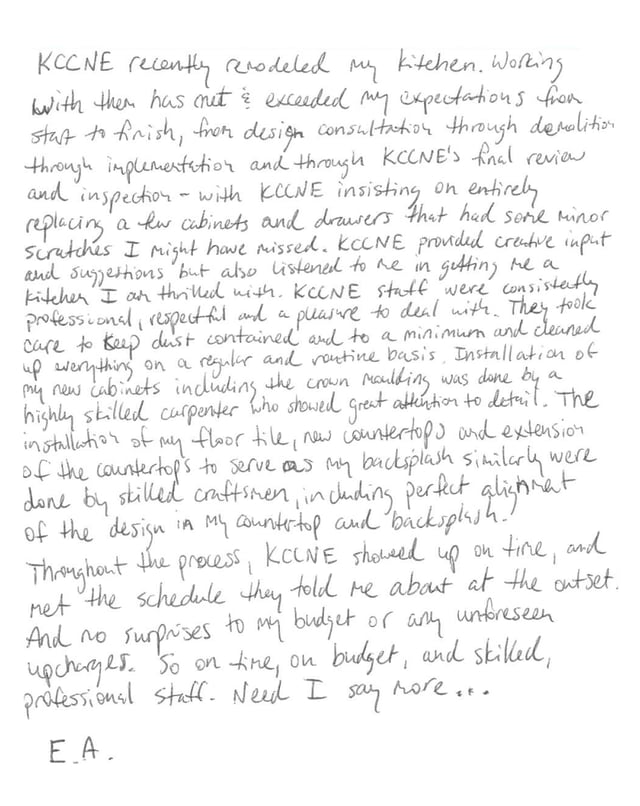 KCCNE recently remodeled my kitchen. Working
with them has met & exceeded my expectations from
start to finish, from design consultation through demolition
through implementation and through KCCNE's final review
and inspection - with KCCNE insisting on entirely
replacing a few cabinets and drawers that had some minor
scratches I might have missed. KCCNE provided creative input
and suggestions but also listened to me in getting me a
kitchen I am thrilled with. KCCNE staff were consistently
professional, respectful and a pleasure to deal with. They took
care to keep dust contained and to a minimum and cleaned
up everything on a regular and routine basis. Installation of
my new cabinets including the crown moulding was done by a
highly skilled carpenter who showed great attention to detail. The
installation of my floor tile, new countertops and extension
of the countertops to serve as my backsplash similarly were
done by skilled craftsmen, including perfect alignment
of the design in my countertop and backsplash.
Throughout the process, KCCNE showed up on time, and
met the schedule they told me about at the outset.
And no surprises to my budget or any unforeseen
upcharges. So on time, on budget, and skilled,
professional staff. Need I say more...
E.A.